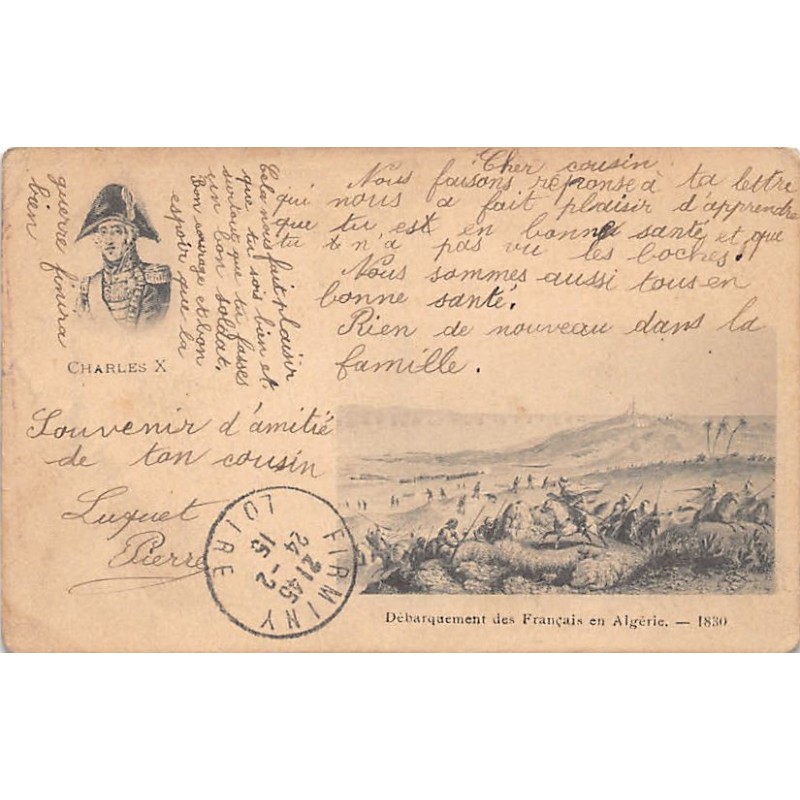 Cher cousin
Nous faisons réponse à ta lettre
qui nous a fait plaisir d'apprendre
que tu est en bonne santé et que
tu n'a pas vu les boches!
Nous sommes aussi tous en
bonne santé.
Rien de nouveau dans la
famille.
Cela nous fait plaisir
que tu sois bien et
surtout que tu fasses
un bon soldat.
Bon courage et bon
espoir que la
guerre finira
bien
CHARLES X
Souvenir d'amitié
de ton cousin
Luquet
Pierre
FIRMINY
LOIRE
21 45
24
15-2
Débarquement des Français en Algérie. — 1830